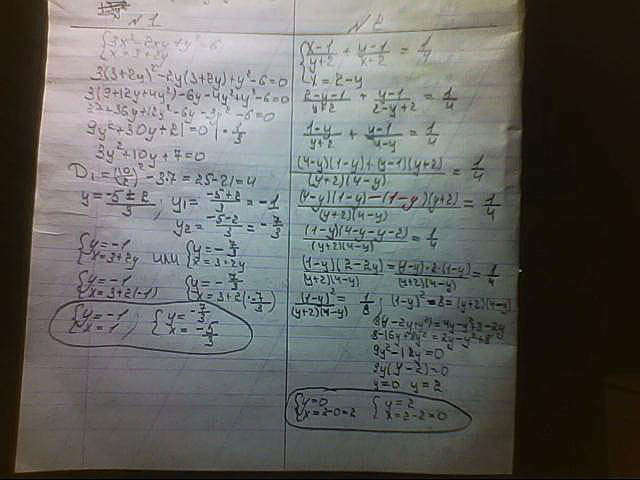 N 1
{3x²+2xy+y²=6
{x=3+2y
3(3+2y)²-2y(3+2y)+y²-6=0
3(9+12y+4y²)-6y-4y²+y²-6=0
27+36y+12y²-6y-3y²-6=0
9y²+30y+21=0 |·1/3
3y²+10y+7=0
D₁=(10/2)²-3·7=25-21=4
y=(-5±2)/3; y₁=(-5+2)/3=-1
y₂=(-5-2)/3=-7/3
{y=-1 {y=-7/3
{x=3+2y или {x=3+2y
{y=-1 {y=-7/3
{x=3+2(-1) {x=3+2(-7/3)
{y=-1 {y=-7/3
{x=1; {x=-5/3
N 2
{(x-1)/(y+2)+(y-1)/(x+2)=1/4
{x=2-y
(2-y-1)/(y+2)+(y-1)/(2-y+2)=1/4
(1-y)/(y+2)+(y-1)/(4-y)=1/4
((4-y)(1-y)+(y-1)(y+2))/((y+2)(4-y))=1/4
((4-y)(1-y)-(1-y)(y+2))/((y+2)(4-y))=1/4
((1-y)(4-y-y-2))/((y+2)(4-y))=1/4
((1-y)(2-2y))/((y+2)(4-y))=((1-y)·2·(1-y))/((y+2)(4-y))=1/4
(1-y)²/((y+2)(4-y))=1/8; (1-y)²·8=(y+2)(4-y)
8-16y+8y²=2y-y²+8
9y²-18y=0
9y(y-2)=0
y=0 y=2
{y=0 {y=2
{x=2-0=2 {x=2-2=0